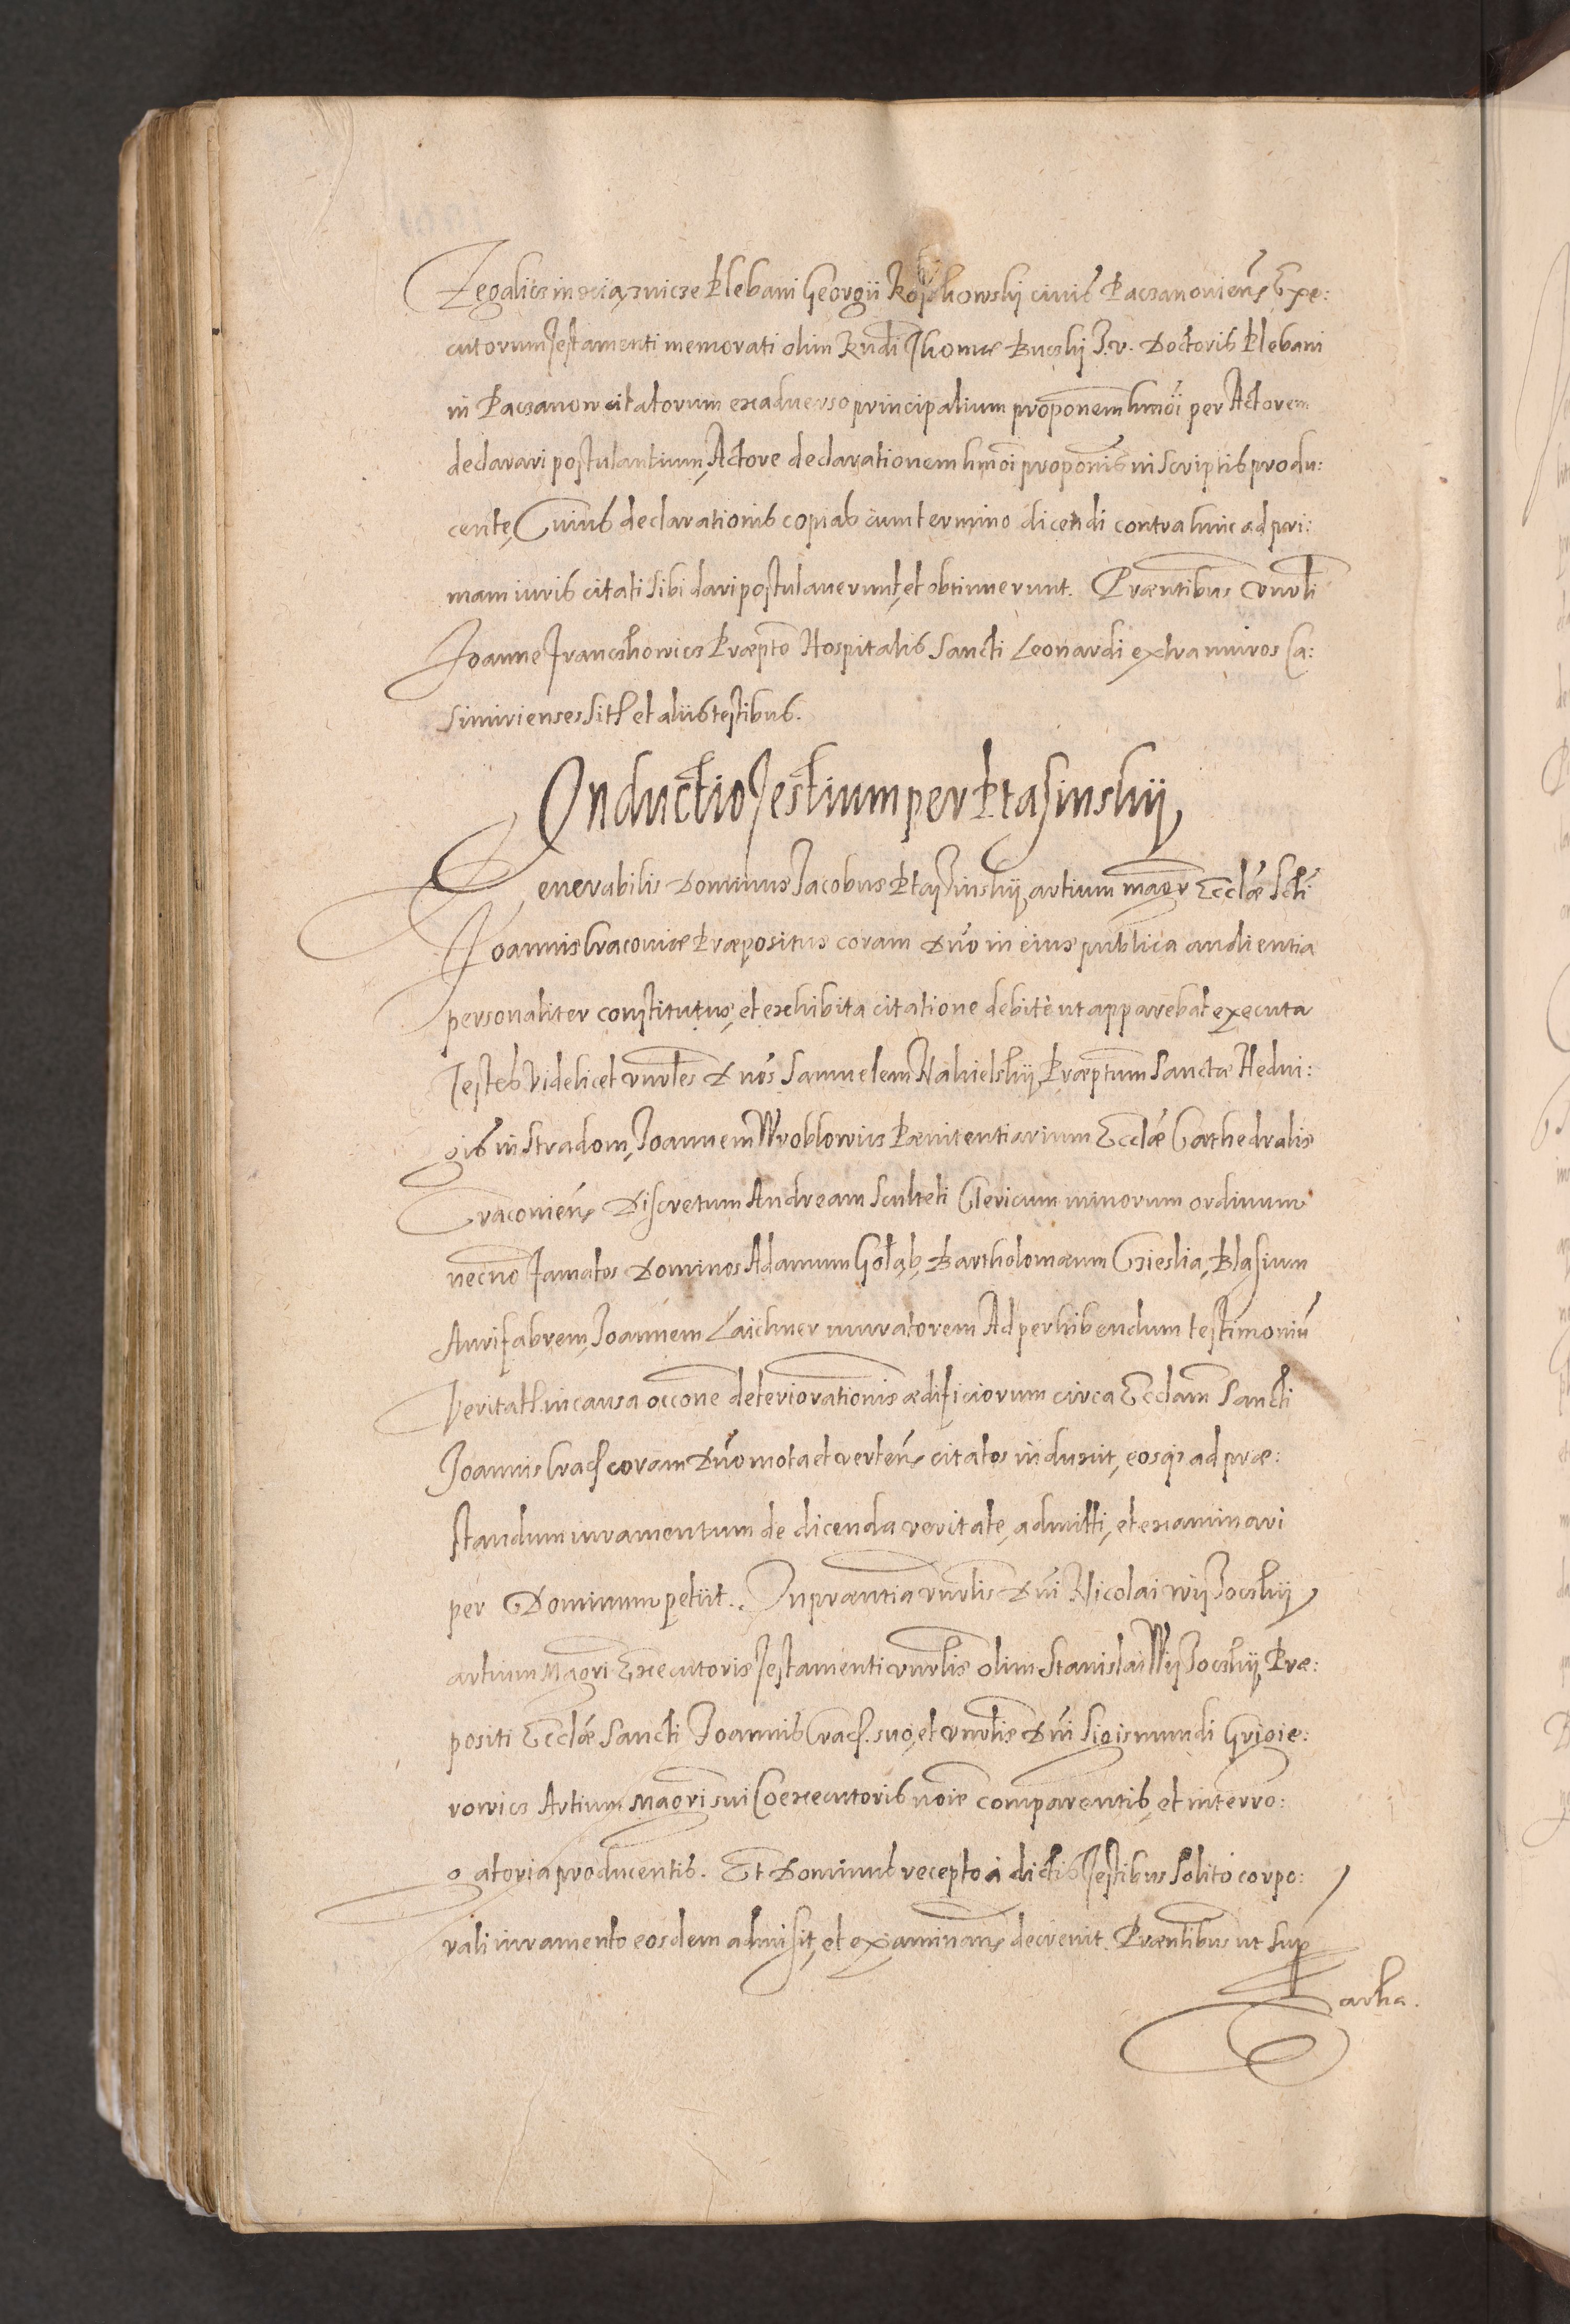 Zegalics in Xiąznicze Plebani Georgii Koszkowski civis Pacanoviens Exe:
cutorum Testamenti memorati olim Rndi Thomæ Buczki I.V. Doctoris Plebani
in Paczanow citatorum ex adverso principalium proponem hmoi per Actorem
declarari postulantium, Actore declarationem hmoi proponis in scriptis produ:
cente, Cuius declarationis copiab cum termino dicendi contra hinc ad pri:
mam iuris citati sibi dari postulaverunt, et obtinuerunt. Præntibus vnrbli
Joanne Franczkowicz Præpto Hospitalis Sancti Leonardi extra muros Ca:
simirienses Sitt et aliis testibus.
Inductio Testium per Ptasinskij
Venerabilis Dominus Jacobus Ptasinskij artium magr Ecclæ Scti
Joannis Cracoviæ Præpositus coram Dno in eius publica audientia
personaliter constitutus, et exhibita citatione debitè ut apparebat executa
Testes Videlicet vnrbles Dnos Samuelem Nakielskij Præptum Sanctæ Hedui:
gis in Stradom, Joannem Wroblowius Pænitentiarium Ecclæ Cathedralis
Cracoviens Discretum Andream Sculteti Clericum minorum ordinum
necno Famatos Dominos Adamum Gołąb, Bartholomæum Czieslia, Blasium
Aurifabrem, Joannem Laichner muratorem Ad perhibendum testimoniu
Veritatt in causa occone deteriorationis ædificiorum circa Ecclam Sancti
Joannis Crac coram Dno mota et verten citatos induxit, eosq ad præ:
standum iuramentum de dicenda veritate, admitti, et examinari
per Dominum petiit. In præntia vnrblis Dni Nicolai Wijsoczkij
artium Magri Executoris Testamenti vnrblis olim Stanislai Wijsoczkij Præ:
positi Ecclæ Sancti Joannis Crac. suo, et vnrblis Dni Sigismundi Grigie:
rowics Artium Magri sui Coexecutoris noie comparentis, et interro:
gatoria producentis. Et Dominus recepto à dictis Testibus solito corpo:
rali iuramento eosdem admisit, et examinans decrevit. Præntibus ut sup